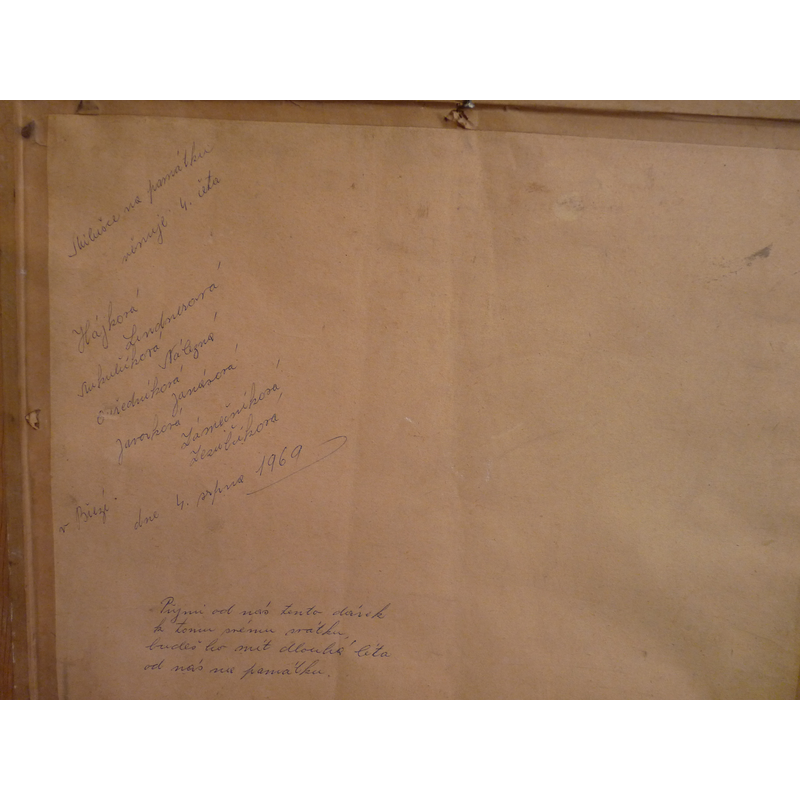 Miluśce na památku
věnují 4. četa
Hájková
Lindnerová
Mikulíková
Nálezná
Ouředníková
Janásová
Javorková
Zámečníková
Zezulčíková
v Březí
dne 4. srpna 1969
Přijmi od nás tento dárek
k tomu svému svátku,
budeš ho mít dlouhá léta
od nás na památku.